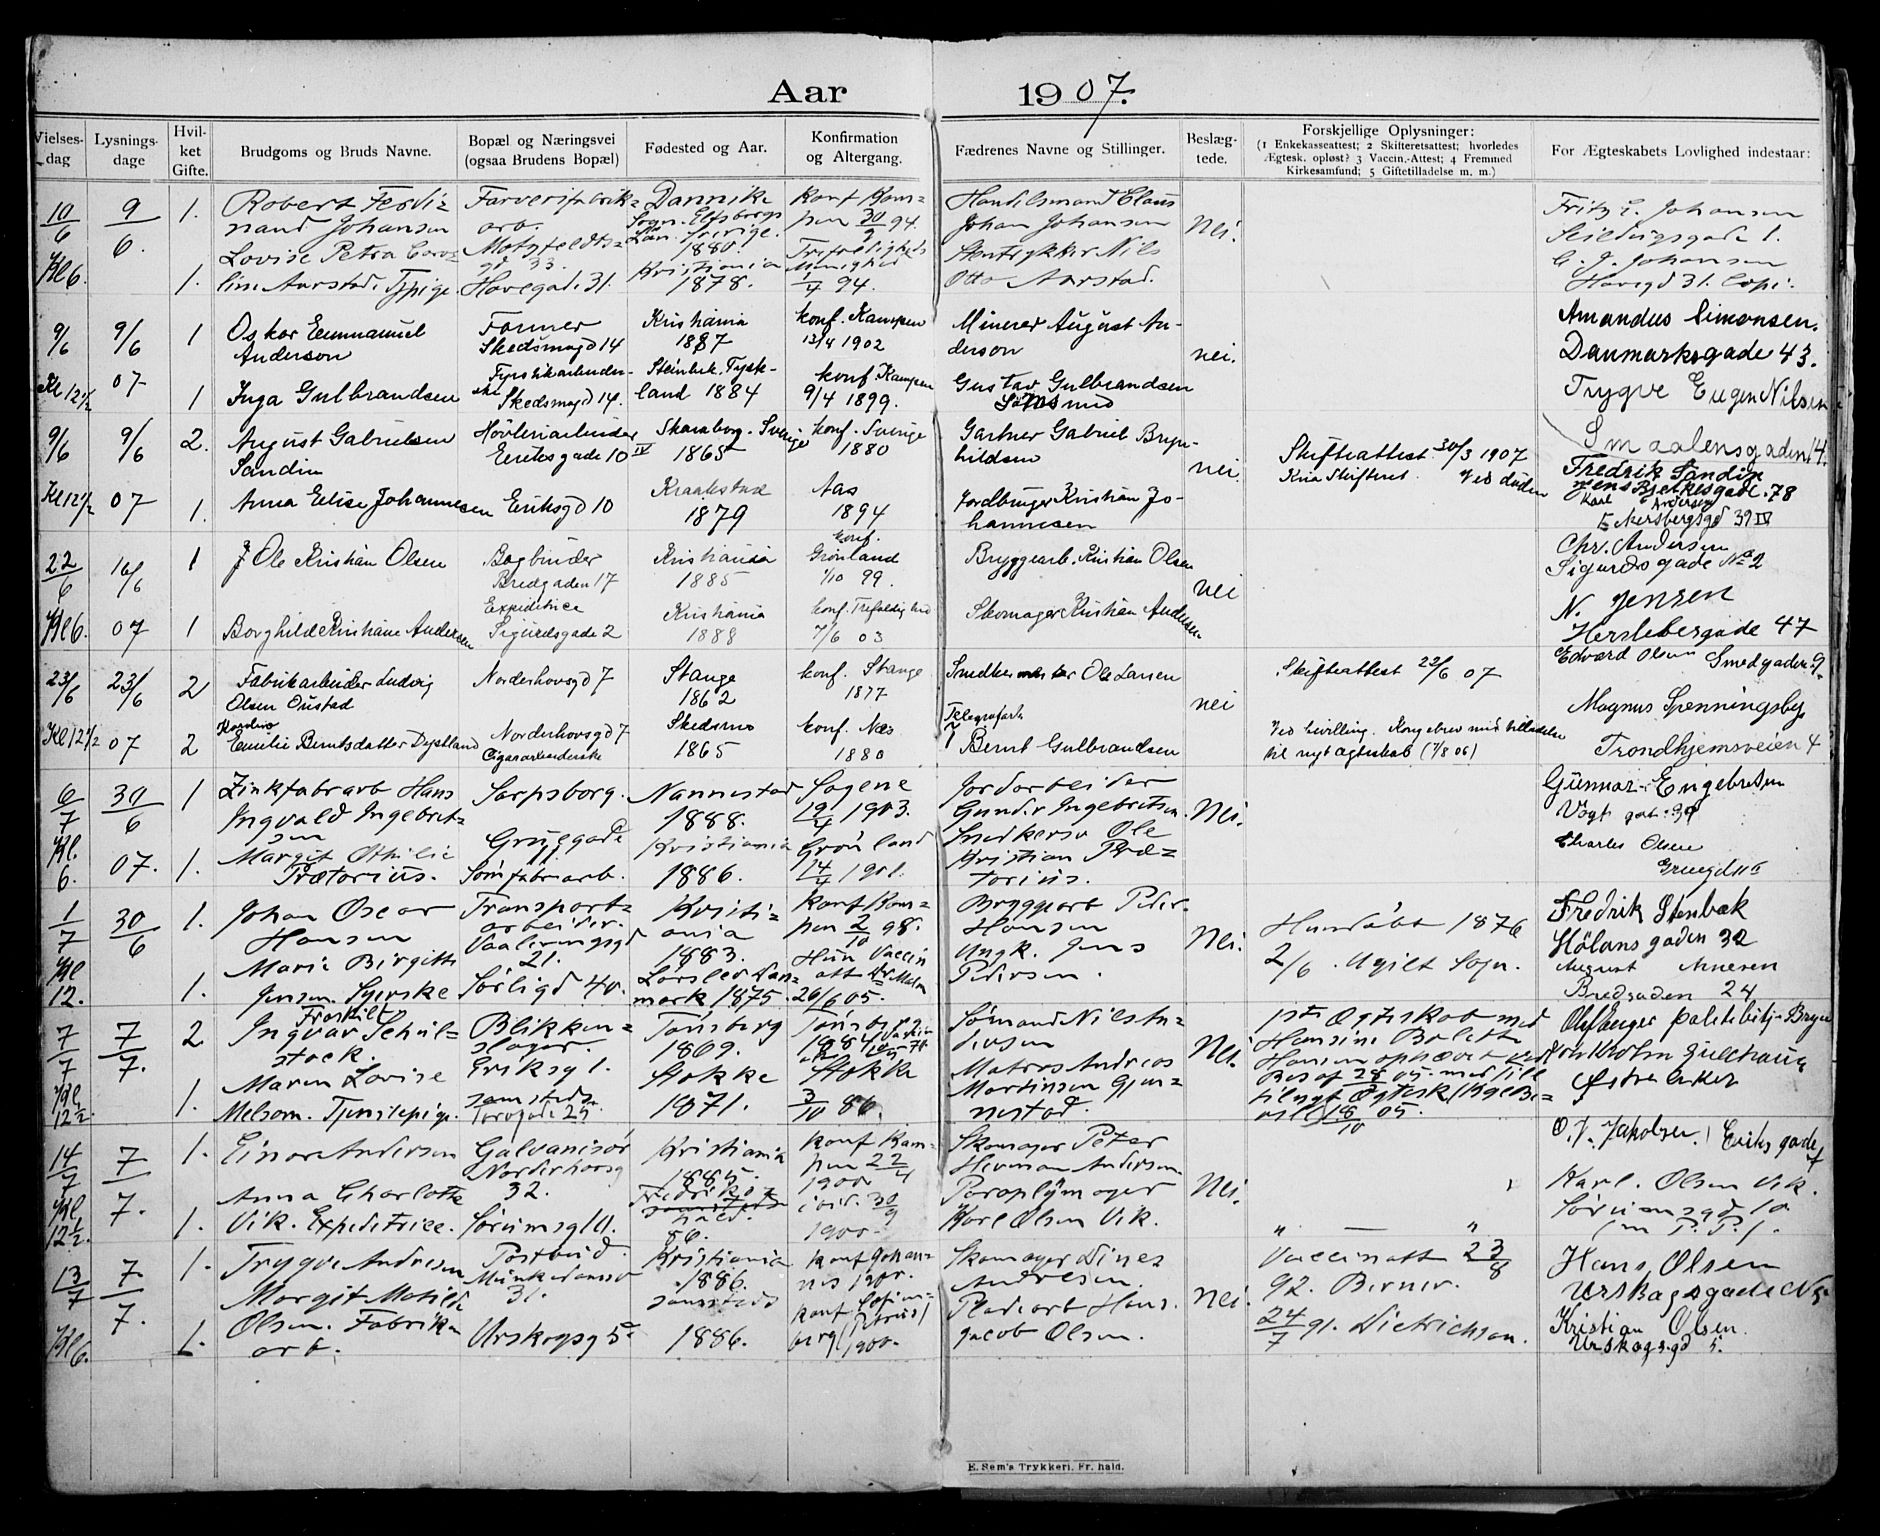 Aar 1907.
Vielses-dag
Lysnings-dage
Hvil-ket Gifte.
Brudgoms og Bruds Navne.
Bopæl og Næringsvei (ogsaa Brudens Bopæl)
Fødested og Aar.
Konfirmation og Altergang.
Fædrenes Navne og Stillinger.
Beslæg-tede.
Forskjellige Oplysninger:
(1 Enkekasseattest; 2 Skifteretsattest; hvorledes
Ægtesk. opløst? 3 Vaccin.-Attest; 4 Fremmed
Kirkesamfund; 5 Giftetilladelse m. m.)
For Ægteskabets Lovlighed indestaar:
10/6 Kl 6.
9/6.
1.
Robert Ferdi-
nand Johansen
Farverifabrik-
arb.
Motzfeldts-
gd 33.
Dannike
Sogn. Elfsborgs
Län. Sverige.
1880.
Konf Kam-
pen 30/9 94.
Handelsmand Claus
Johan Johansen
Nei.
Fritz E. Johansen
Seildugsgade 1.
1.
Lovise Petra Caro-
line Aarstad. Typige.
Havegade 31.
Kristiania
1878.
Trefoldigheds
Menighed
1/4 94.
Stentrykker Nils
Otto Aarstad.
C. J. Johansen
Havegd 31.
9/6 Kl 12 1/2
9/6 07
1
Oskar Emmanuel
Anderson
Former
Skedsmogd 14
Kristiania
1887
konf. Kampen
13/4 1902
Minerer August An-
derson
nei.
Amandus Simonsen.
Danmarksgade 43.
1
Inga Gulbrandsen
Fyrstikarbeider-
ske Skedsmogd 14.
Steinbek. Tysk-
land 1884
konf Kampen
9/4 1899.
Gustav Gulbrandsen
Trygve Eugen Nilsen
Smaalensgaden 14.
9/6 Kl 12 1/2
9/6 07
2.
August Gabrielsen
Sandin
Høvleriarbeider
Eriksgade 10 IV
Skaraborg. Sverige
1865
konf. Sverige
1880
Gartner Gabriel Bryn-
hildsen
nei.
Skifteattest 30/3 1907
Kria Skifteret. Ved døden
Fredrik Sandin
Jens Bjelkesgade. 78
1.
Anna Elise Johannesen
Eriksgd 10
Kraakstad
1879
Aas
1894
Jordbruger Kristian Jo-
hannesen
Karl Andersen
Ekersbergsgd 39 IV
22/6 Kl 6.
16/6 07
1
Ole Kristian Olsen
Bogbinder
Bredgaden 17
Kristiania
1885
konf.
Grønland
1/10 99.
Bryggearb. Kristian Olsen
nei
Chr. Andersen
Sigurdsgade No 2
1
Borghilde Kristiane Andersen
Expeditrice
Sigurdsgade 2
Kristiania
1888
konf. Trefoldighed
7/6 03
Skomager Kristian Andersen
N. Jensen
Herslebsgade 47
23/6 Kl 12 1/2
23/6 07
2
Fabrikarbeider Ludvig
Olsen Oustad
Norderhovsgd 7
Stange
1862
konf. Stange
1877
Snedkermester Ole Larsen
nei
Skifteattest 22/6 07
Edvard Olsen Smedgaden 9.
2
Karoline
Emilie Berntsdatter Dystland
Norderhovsgd 7
Cigararbeiderske
Skedsmo
1865
konf. Næs
1880
Telegrafarb.
Bernt Gulbrandsen
Ved bevilling. Kongebrev med tilladelse
til nyt ægteskab (7/8 06)
Magnus Spenningsby
Trondhjemsveien 4
6/7 Kl. 6.
30/6 07.
1
Zinkfabrarb Hans
Ingvald Ingebret-
sen
Sarpsborg.
Nannestad
1888.
Sagene
19/4 1903.
Jordarbeider
Gunder Ingebretsen.
Nei.
Gunnar Engebretsen
Vogts gate 39
1.
Margit Othilie
Prætorius.
Grüggade
Sømfabriarb.
Kristiania
1886.
Grønland
14/4 1901.
Snedkersv Ole
Kristian Præ-
torius.
Charles Olsen
1/7 Kl 12.
30/6
1.
Johan Oscar
Hansen
Transport-
arbeider.
Vaalerengsgd
21.
Kristi-
ania
1883.
Konf Kam-
pen 2/10 98.
Bryggearb Peder
Hansen
Nei.
Hundøbt 1876
2/6. Ugilt Sogn.
Fredrik Stenbæk
Hølansgaden 32
1.
Marie Birgitte
Jensen. Syerske
Sørligd 40.
Lørslev Dan-
mark 1875.
Hun Vaccin
att
26/6 05.
Ungk. Jens
Pedersen.
August Arnesen
Bredgaden 24
7/7 Kl 12 1/2
7/7.
2
Fraskilt
Ingvar Schul-
stock.
Blikken-
slager.
Eriksg 1.
Tønsberg
1869.
Tønsbg
1884
Sømand Nils An-
dersen
Nei.
1ste Ægteskab med
Hansine Bolette
Hansen ophævet ved
Bev af 28/ 05. med till
til nyt Ægtesk (Kgl Be-
vill 18/10 05.
1.
Maren Lovise
Melsom. Tjenstepige.
samsteds.
Torvgade 25
Stokke
1871.
Stokke
3/10 86.
Matros Andreas
Martinsen Gjen-
nestad.
Østre Aker
14/7 Kl 12 1/2.
7/7.
1.
Einar Andersen
Galvanisør
Norderhovsg
32.
Kristiania
1885.
Konf Kam-
pen 22/4
1900
Skomager Peter
Herman Andersen.
Nei.
O. V. Jakobsen. Eriks gade 7
1.
Anna Charlotte
Vik. Expeditrice.
Sørumsg 10.
Fredriks-
hald.
86.
ibid. 30/9
1900.
Paraplymager
Karl Olsen Vik.
" — "
Karl. Olsen Vik.
Sørumsgd 10
13/7 Kl 6.
7/7.
1.
Trygve Andresen
Postbud.
Munkedamsv
31.
Kristiania
1886.
Konf Johan-
nes 1901.
Skomager Dines
Andresen.
Nei.
Vaccinatt 23/8
92. Berner.
Hans, Olsen
Urskogsgade No 5.
1.
Margit Matilde
Olsen. Fabrik-
arb.
Urskogsg 5
samsteds
1886.
1900.
Pladearb Hans
Jacob Olsen.
24/7 91. Dietrichson.
Kristian Olsen.
Urskogsgd 5.
E. Sem's Trykkeri, Fr.hald.